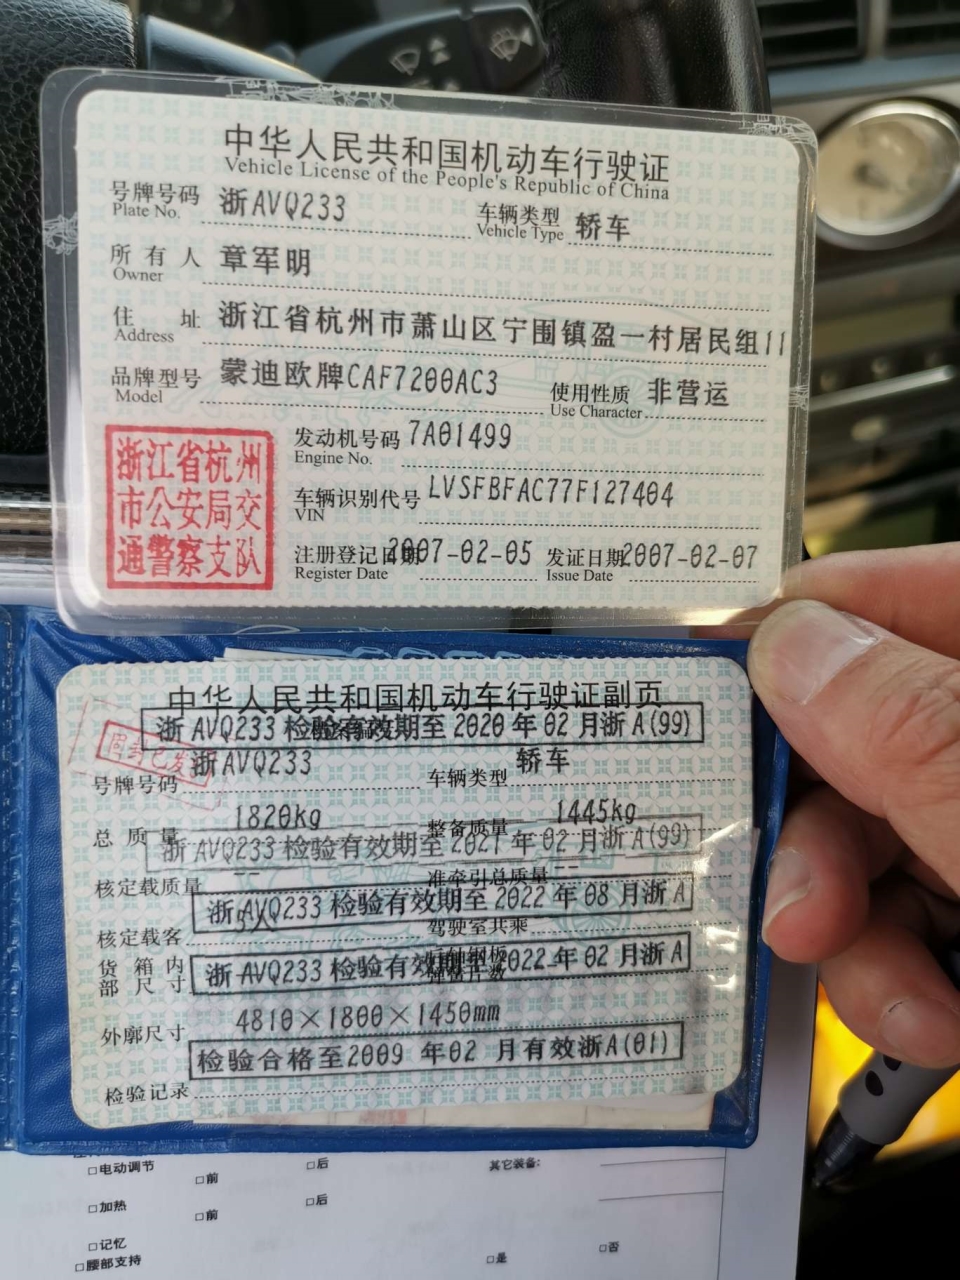 中华人民共和国机动车行驶证
Vehicle License of the People's Republic of China
号牌号码 浙AVQ233 车辆类型 轿车
Plate No. Vehicle Type
所有人 章军明
Owner
住址 浙江省杭州市萧山区宁围镇盈一村居民组11
Address
品牌型号 蒙迪欧牌CAF7200AC3 使用性质 非营运
Model Use Character
浙江省杭州
市公安局交
通警察支队
发动机号码 7A01499
Engine No.
车辆识别代号 LVSFBFAC77F127404
VIN
注册登记日期 2007-02-05 发证日期 2007-02-07
Register Date Issue Date
中华人民共和国机动车行驶证副页
浙AVQ233 检验有效期至 2020年02月浙A(99)
已发
号牌号码 浙AVQ233 车辆类型 轿车
总质量 1820kg 整备质量 1445kg
浙AVQ233 检验有效期至 2021年02月浙A(99)
核定载质量 -- 准牵引总质量 --
浙AVQ233 检验有效期至 2022年08月浙A
核定载客 驾驶室共乘
浙AVQ233 检验有效期至 2022年02月浙A
货箱内
部尺寸
外廓尺寸 4810×1800×1450mm
检验合格至2009年02月有效浙A(01)
检验记录
□电动调节 □前 □后 其它装备:
□加热 □前 □后
□记忆
□腰部支持 □是 □否